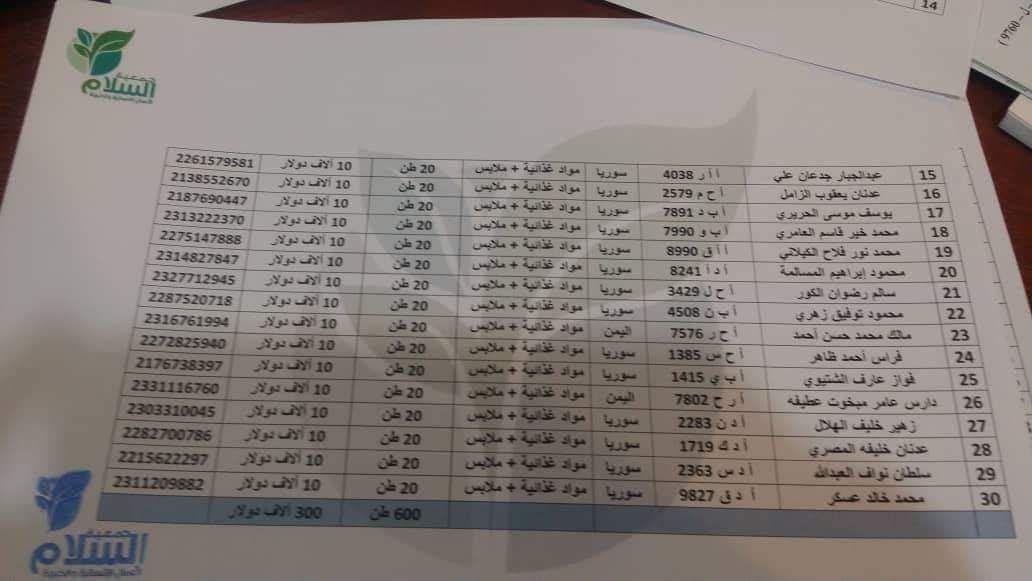 14
( 9760
جمعية
السلام
للأعمال الإنسانية والخيرية
15 عبدالجبار جدعان علي أ أ ر 4038 سوريا مواد غذائية + ملابس 20 طن 10 الاف دولار 2261579581
16 عدنان يعقوب الزامل أ ح م 2579 سوريا مواد غذائية + ملابس 20 طن 10 الاف دولار 2138552670
17 يوسف موسى الحريري أ ب د 7891 سوريا مواد غذائية + ملابس 20 طن 10 الاف دولار 2187690447
18 محمد خير قاسم العامري أ ب و 7990 سوريا مواد غذائية + ملابس 20 طن 10 الاف دولار 2313222370
19 محمد نور فلاح الكيلاني أ أ ق 8990 سوريا مواد غذائية + ملابس 20 طن 10 الاف دولار 2275147888
20 محمود إبراهيم المسالمة أ د أ 8241 سوريا مواد غذائية + ملابس 20 طن 10 الاف دولار 2314827847
21 سالم رضوان الكور أ ح ل 3429 سوريا مواد غذائية + ملابس 20 طن 10 الاف دولار 2327712945
22 محمود توفيق زهري أ ب ن 4508 سوريا مواد غذائية + ملابس 20 طن 10 الاف دولار 2287520718
23 مالك محمد حسن أحمد أ ح ر 7576 اليمن مواد غذائية + ملابس 20 طن 10 الاف دولار 2316761994
24 فراس أحمد ظاهر أ ح س 1385 سوريا مواد غذائية + ملابس 20 طن 10 الاف دولار 2272825940
25 فواز عارف الشتيوي أ ب ي 1415 سوريا مواد غذائية + ملابس 20 طن 10 الاف دولار 2176738397
26 دارس عامر مبخوت عطيفه أ ر ح 7802 اليمن مواد غذائية + ملابس 20 طن 10 الاف دولار 2331116760
27 زهير خليف الهلال أ د ن 2283 سوريا مواد غذائية + ملابس 20 طن 10 الاف دولار 2303310045
28 عدنان خليفه المصري أ د ك 1719 سوريا مواد غذائية + ملابس 20 طن 10 الاف دولار 2282700786
29 سلطان نواف العبدالله أ د س 2363 سوريا مواد غذائية + ملابس 20 طن 10 الاف دولار 2215622297
30 محمد خالد عسكر أ د ق 9827 سوريا مواد غذائية + ملابس 20 طن 10 الاف دولار 2311209882
600 طن 300 الاف دولار
جمعية
السلام
للأعمال الإنسانية والخيرية